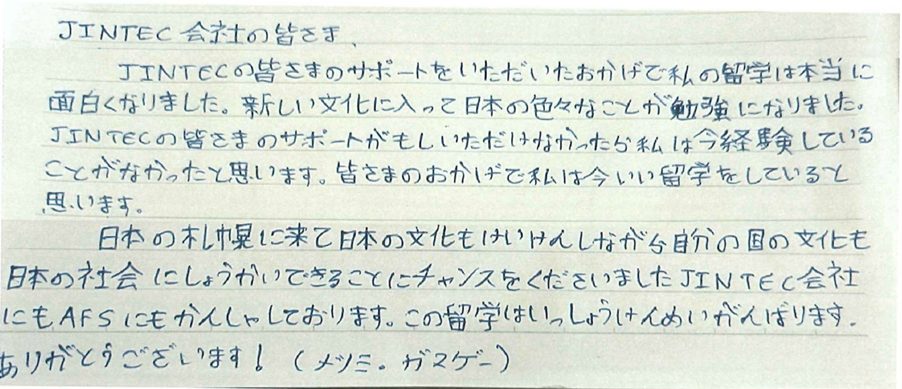 JINTEC 会社の皆さま、
JINTECの皆さまのサポートをいただいたおかげで私の留学は本当に
面白くなりました。新しい文化に入って日本の色々なことが勉強になりました。
JINTECの皆さまのサポートがもしいただけなかったら私は今経験している
ことがなかったと思います。皆さまのおかげで私は今いい留学をしていると
思います。
日本の札幌に来て日本の文化もけいけんしながら自分の国の文化も
日本の社会にしょうかいできることにチャンスをくださいましたJINTEC会社
にもAFSにもかんしゃしております。この留学はいっしょうけんめいがんばります。
ありがとうございます! (メツミ・ガスゲー)